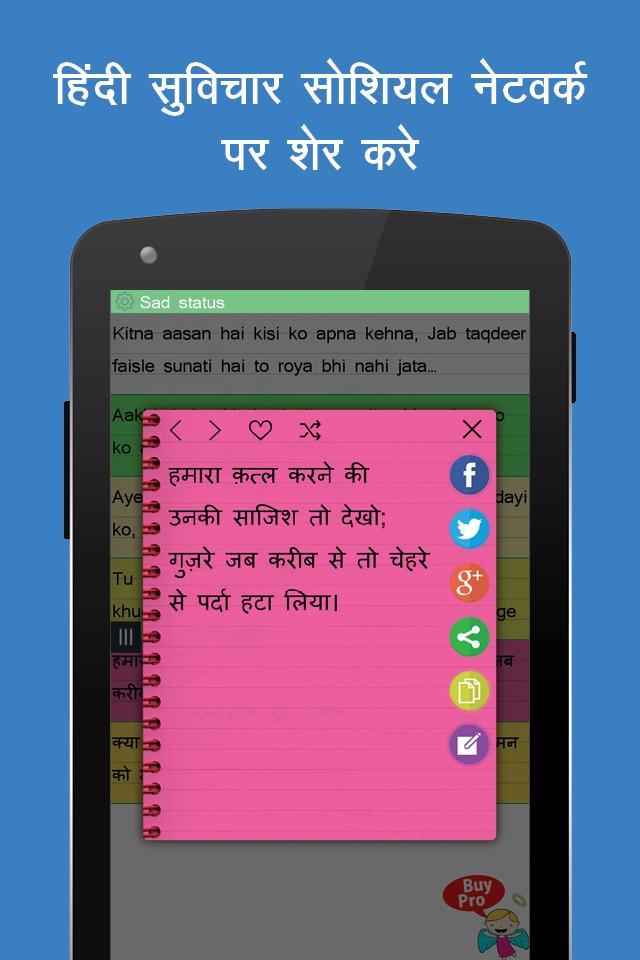 हिंदी सुविचार सोशियल नेटवर्क
पर शेर करे
Sad status
Kitna aasan hai kisi ko apna kehna, Jab taqdeer
faisle sunati hai to roya bhi nahi jata...
ko
Aye
dayi
ko,
Tu
khu
ge
हमारा क़त्ल करने की
उनकी साजिश तो देखो;
गुज़रे जब करीब से तो चेहरे
से पर्दा हटा लिया।
f
g+
हमा
जब
करीब
क्या
मन
को
Buy
Pro